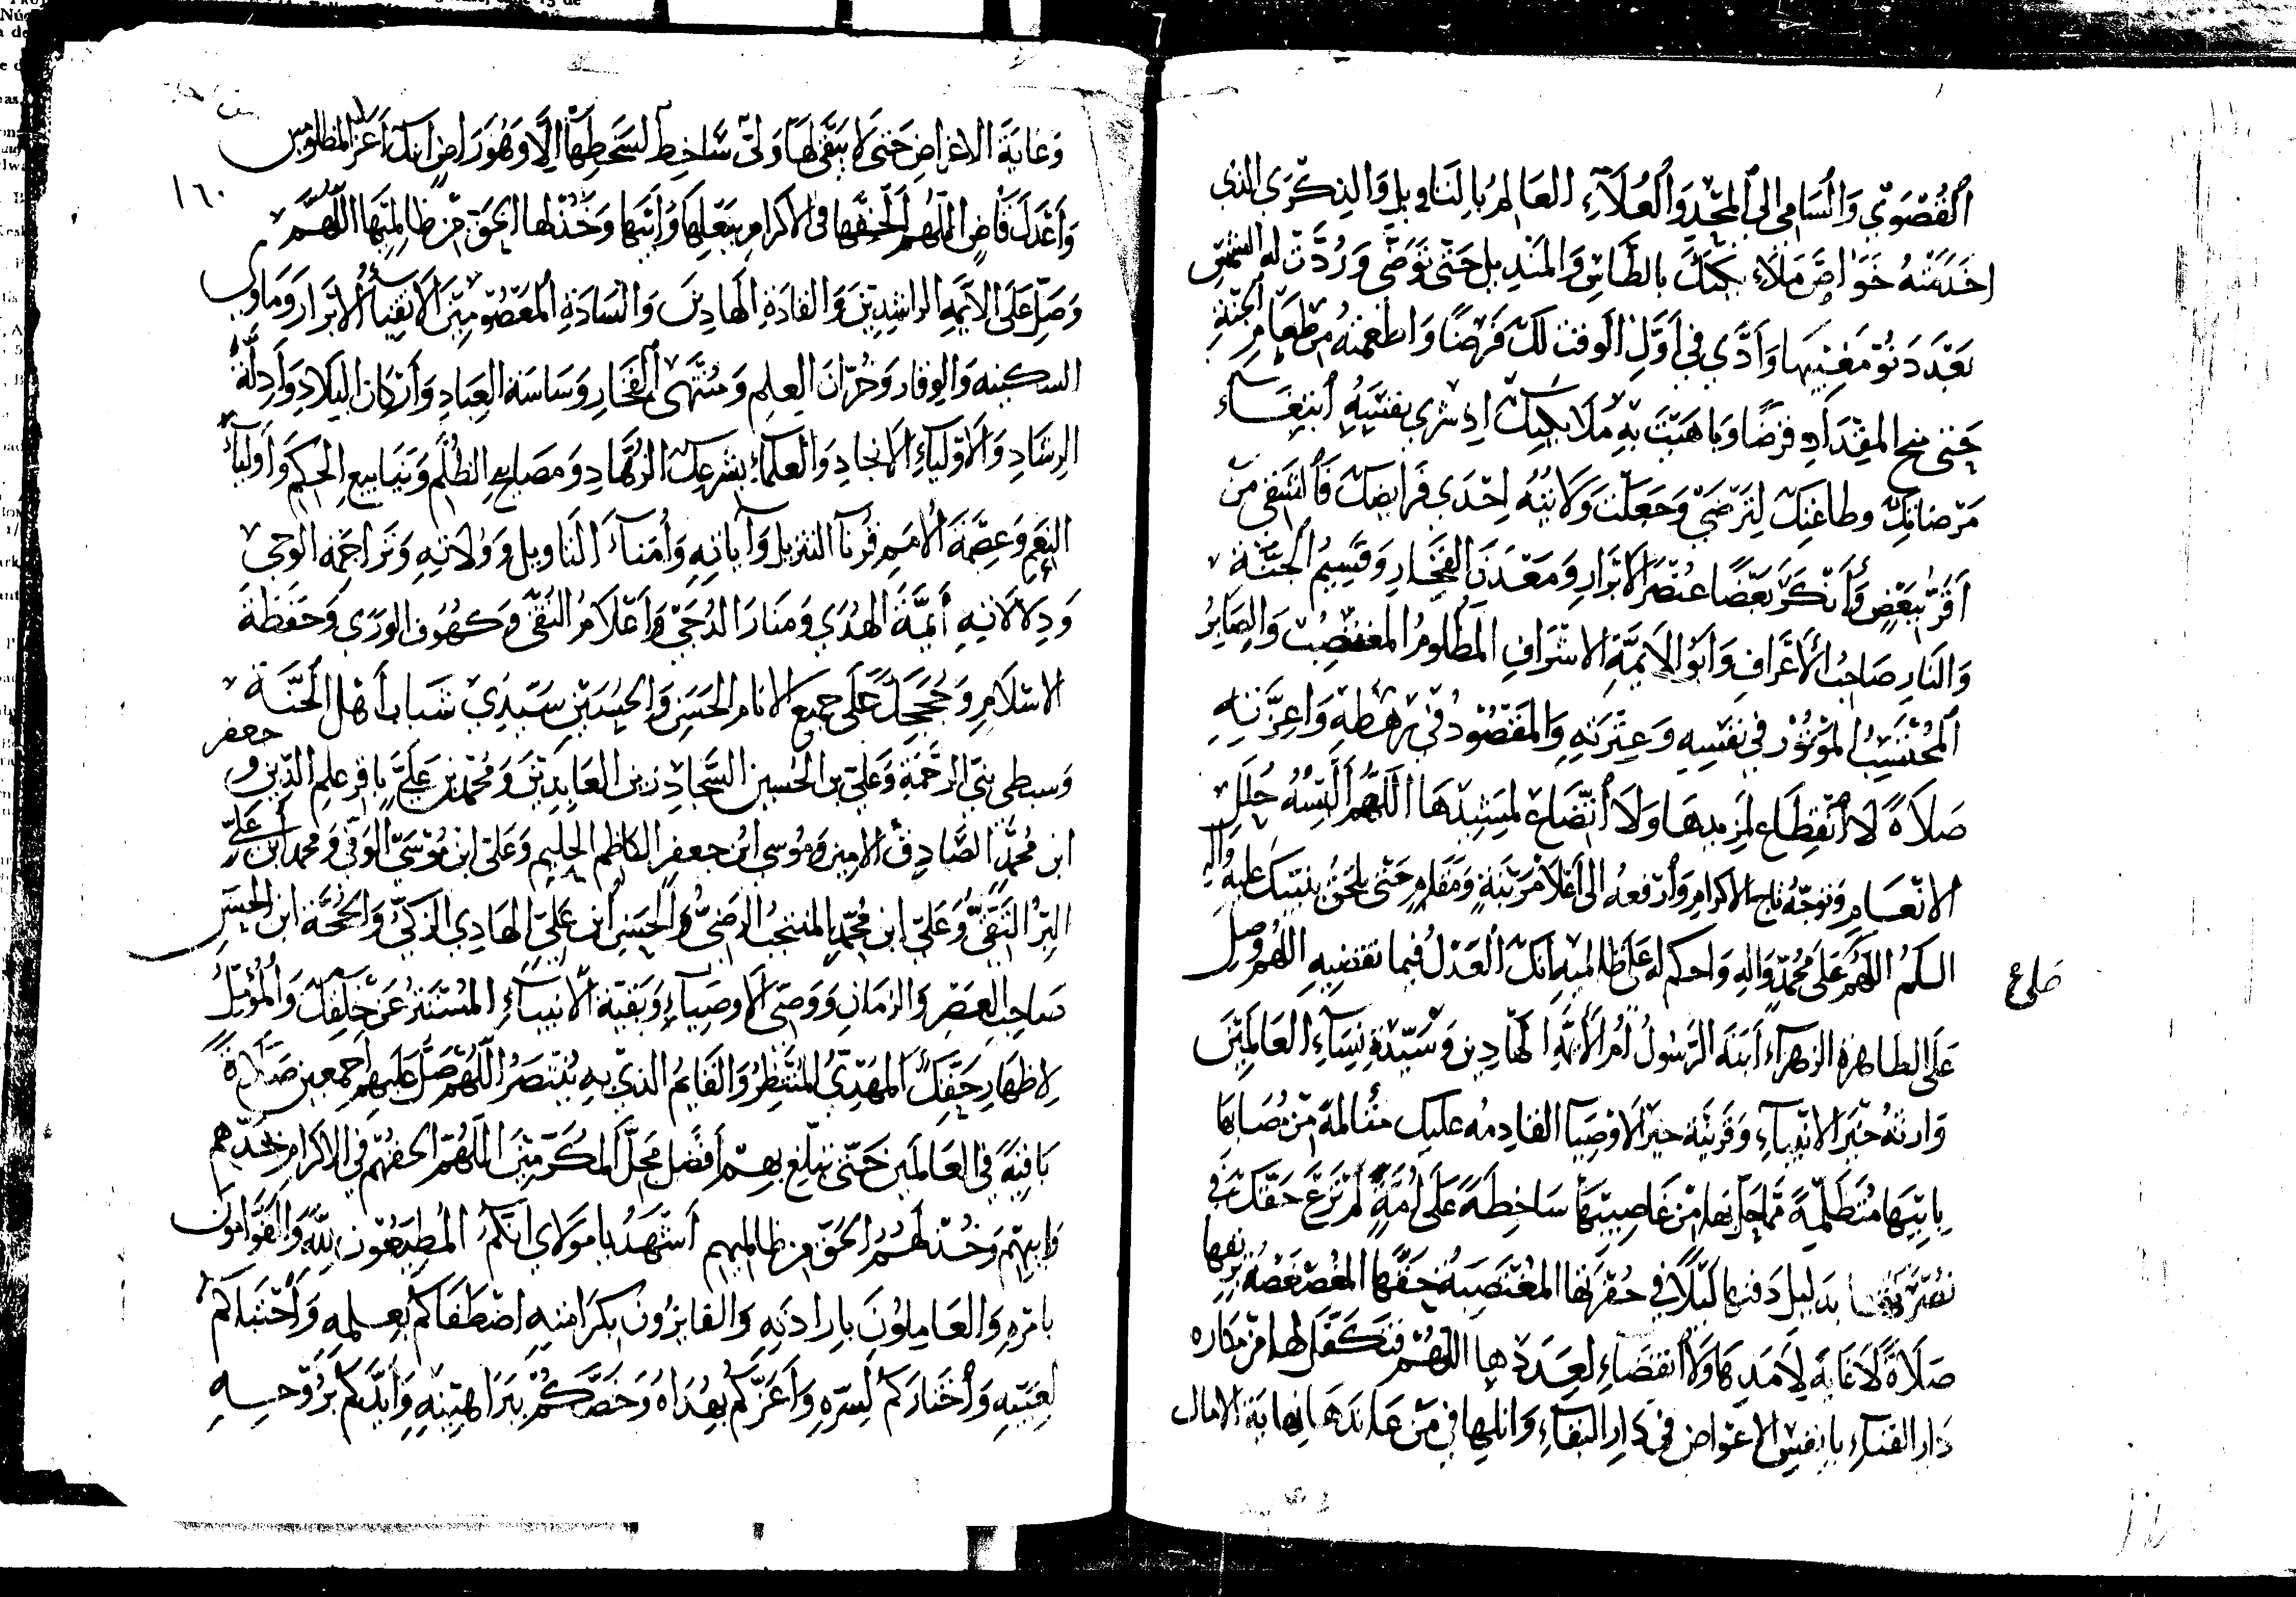 القُصْوَى وَالسَّامِي الى المَجْدِ وَالعُلَاءِ العَالِمُ بالتَاويلِ وَالذِكْرَى الذى
اخْدَمْتَهُ خَوَاصَّ مَلَائِكَتِكَ بالطَّاسِ وَالمَنْدِيل حَتّى تَوَضَّى وَرُدَّتْ له الشمس
بَعْدَ دنوّ مَغِيْبِهَا وَادَّى فِي اوَّلِ الوَقت لَكَ فَرضًا وَاطعمتهُ مِن طَعَامِ الجنّة
حَتى منح المِقْدَادِ قرضًا وَباهَيْتَ بِهِ مَلَائِكَتِكَ اذ شَرى بنفسِهِ ابْتِغَاءَ
مَرْضاتِكَ وطاعَتِكَ لِتَرْضَى وَجَعَلتَ وَلَايَتَهُ اِحْدَى فَرَايضِكَ فَالشَقِى مَن
اقَرَّ بِبَعْضٍ وَأَنْكَرَ بَعْضًا عُنْصُرِ الابْرَارِ وَمَعْدَنِ الفَخَارِ وَقَسِيمُ الجَنَّةِ
وَالنَارِ صَاحِبُ الأعْرَافِ وَابُو الائِمَّةِ الاشْرَافِ المَظلُومُ المغتَصِبُ وَالصَابِرُ
المُحْتَسِبُ المَوْتُوْرُ في نَفسِهِ وَعِتْرَتِهِ وَالمَقْصُودُ في رَهْطِهِ وَاعِزَّتِهِ
صَلَاةً لَا انقِطَاعَ لِمَزِيدِهَا وَلَا اتّضَاعَ لِمَشِيْدِهَا اللّهُم البِسْهُ حُلَلَ
الانْعَامِ وَتَوِّجْهُ تاجَ الاكرَامِ وَارْفعهُ الى اعْلَا مَرْتبَةٍ وَمَقَامٍ حَتى يلحَقُ بنبيّك عليه واله
السلمُ اللهُمَّ صل على مُحَمّدٍ وَالِهِ وَاحكم لهُ على ظالميه انكَ العَدْلُ فيما تقضِيهِ اللهم وصل
عَلَى الطاهِرَةِ الزهراءِ ابْنَةِ الرَّسُولُ امُ الأئمّةِ الهَادِين وَسَيّدَةِ نِسَاءِ العَالَمِيْنَ
وَارثةُ خَيْرَ الانبِيَآءِ وَقَرِيْنَة خيرَ الاوْصِيَا القادِمه عليك متألمة مِنْ مُصَابِهَا
بِابِيْهَا مُتَظَلِّمَةً مِمَّا حَلّ بهَا مِنْ غَاصِبِيْهَا سَاخِطَةً عَلَى امَّةٍ لَمْ تَرْعَ حَقّكَ في
نُصْرَتهَا بدليل دَفنها لَيْلًا في حُفْرَتِهَا المُغْتَصَبَة حَقَّهَا المُغصّصَةُ بِرِيْقِها
صَلَاةً لَا غَايَةَ لِأمَدِهَا وَلَا انقضَاءِ لِعَدَدِها اللّهُمّ فتَكفّل لها مِنْ مكارِهِ
دَارِ الفَنَآءِ بانفَسِ الاعْوَاضِ في دَارِ البَقآءِ وَانلِها في مَنْ عَانَدَهَا نِهَايَةَ الامال
صلى ع
وَغايَةَ الاغراضِ حَتى لَا يَبْقَى لَهَا وَلىّ سَاخِط لِسَخَطِهَا الّا وَهُوَ رَاضٍ انكَ اعَزّ المظلومين
وَاعْدَلَ قَاضٍ اللهُمّ الحِقهَا في الاكرامِ بِبَعْلِهَا وَابِيْهَا وَخُذْ لها الحَق مِنْ ظالِمِيْهَا اللّهُمّ
وَصَلّ عَلَى الائِمّةِ الراشِدِيْنَ وَالقادَةِ الهادِينَ وَالسَادَةِ المَعْصُوْمِيْنَ الاتقِيَاءِ الابْرَارِ وَمَاوى
السكينه وَالوقار وَخُزّان العِلم وَمُنْتَهَى الفَخَارِ وَسَاسَة العِبَادِ وَارْكَان البِلَادِ وَأدِلَّة
الرشَادِ وَالاولِيَآءِ الانجَادِ وَالعلمَاءِ بشَرعِكَ الزُهَّادِ وَمَصَابيحِ الظُلَم وَيَنَابيع الحِكَم وَأولِيَاءِ
النِعَم وَعِصْمَةَ الأُمَم قُرَنآء التنزيل وَآيَاتِهِ وَأُمَنَاءَ التَاويل وَوُلَاتِهِ وَتَرَاجمَةِ الوحى
وَدِلَالاتِهِ أَيِمَّةَ الهُدَى وَمَنَارَ الدُّجَى وَأعْلَامُ التُقَى وَكهُوفِ الوَرَى وَحَفَظَةَ
الاسْلَامِ وَحُجَجِكَ عَلَى جميع الانام الحَسَنِ وَالحُسَيْنِ سَيّدِيْ شبَابِ أهْل الجَنَّةِ
وَسبطى نبىّ الرَّحْمَةِ وَعَلِيّ بن الحُسين السَّجادِ زين العَابِدِيْنَ وَمُحَمّدِ بن عَلِيّ بَاقر علم الدّين و جعفر
ابن مُحمَّد الصَّادِقِ الامين وَمُوسى ابن جعفر الكاظم الحَليم وَعَلى ابن مُوْسَى الوَفّى وَمحمد ابن عَلىّ
البَرّ التَقِيّ وَعَلِىّ ابن مُحَمّدٍ المنتجبُ الرضَىّ وَالحَسَن ابن عَلِىّ الهَادِي الزكىّ وَالحُجّة ابن الحَسن
صَاحِبِ العَصْرِ وَالزمَانِ وَوَصّى الاوصِيَآءِ وَبقيّة الأنبيَآءِ المُسْتَتِرُ عَنْ خَلقِكَ وَالمُؤمَّلُ
لِاظهَارِ حَقِّكَ المَهْدِيّ المُنتَظِرُ وَالقَايمُ الذىْ بهِ يُنْتَصَرُ اللّهُمّ صَلّ عَلَيهِم اجمعين صَلَاةً
بَاقِيَةً في العَالَمين حَتى تبَلّغ بهِمْ أفضَلَ مَحلّ المكَرّمِيْنَ اللّهُمّ الحِقهُم في الاكرام بِجَدّهم
وَابيهِم وَخُذ لَهُمُ الحَقّ مِن ظَالميهم أشْهَدُ يا موْلَاي انّكُمْ المُطِيْعُونَ للّهِ وَالقوَّامُونَ
بامْرِهِ وَالعَامِلُونَ بإرادَتِهِ وَالفايِزُونَ بكَرَامَتِهِ اصْطَفَاكُمْ بِعِلمِهِ وَاجْتَبَاكُمْ
لِغَيْبِهِ وَاخْتَارَكُمْ لِسِرّهِ وَاعَزّكُم بِهُدَاهُ وَخَصَّكُمْ بِبَرَاهِيْنِهِ وَأيَّدَكُم بِرُوْحِهِ
١٦٠